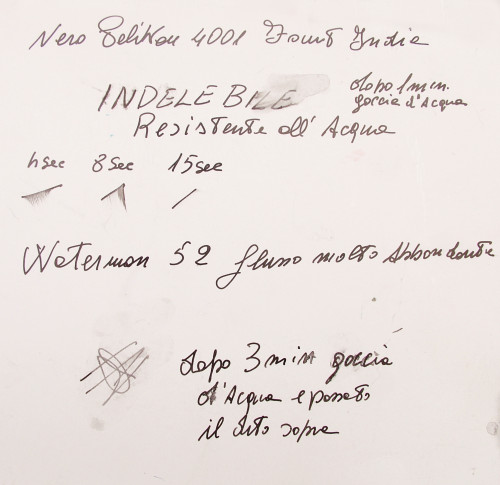 Nero Pelikan 4001 Fount India
INDELEBILE
dopo 1 min.
goccia d'Acqua
Resistente all'Acqua
4sec 8sec 15sec
Waterman 52 flusso molto Abbondante
dopo 3 min goccia
d'Acqua e passato
il dito sopra